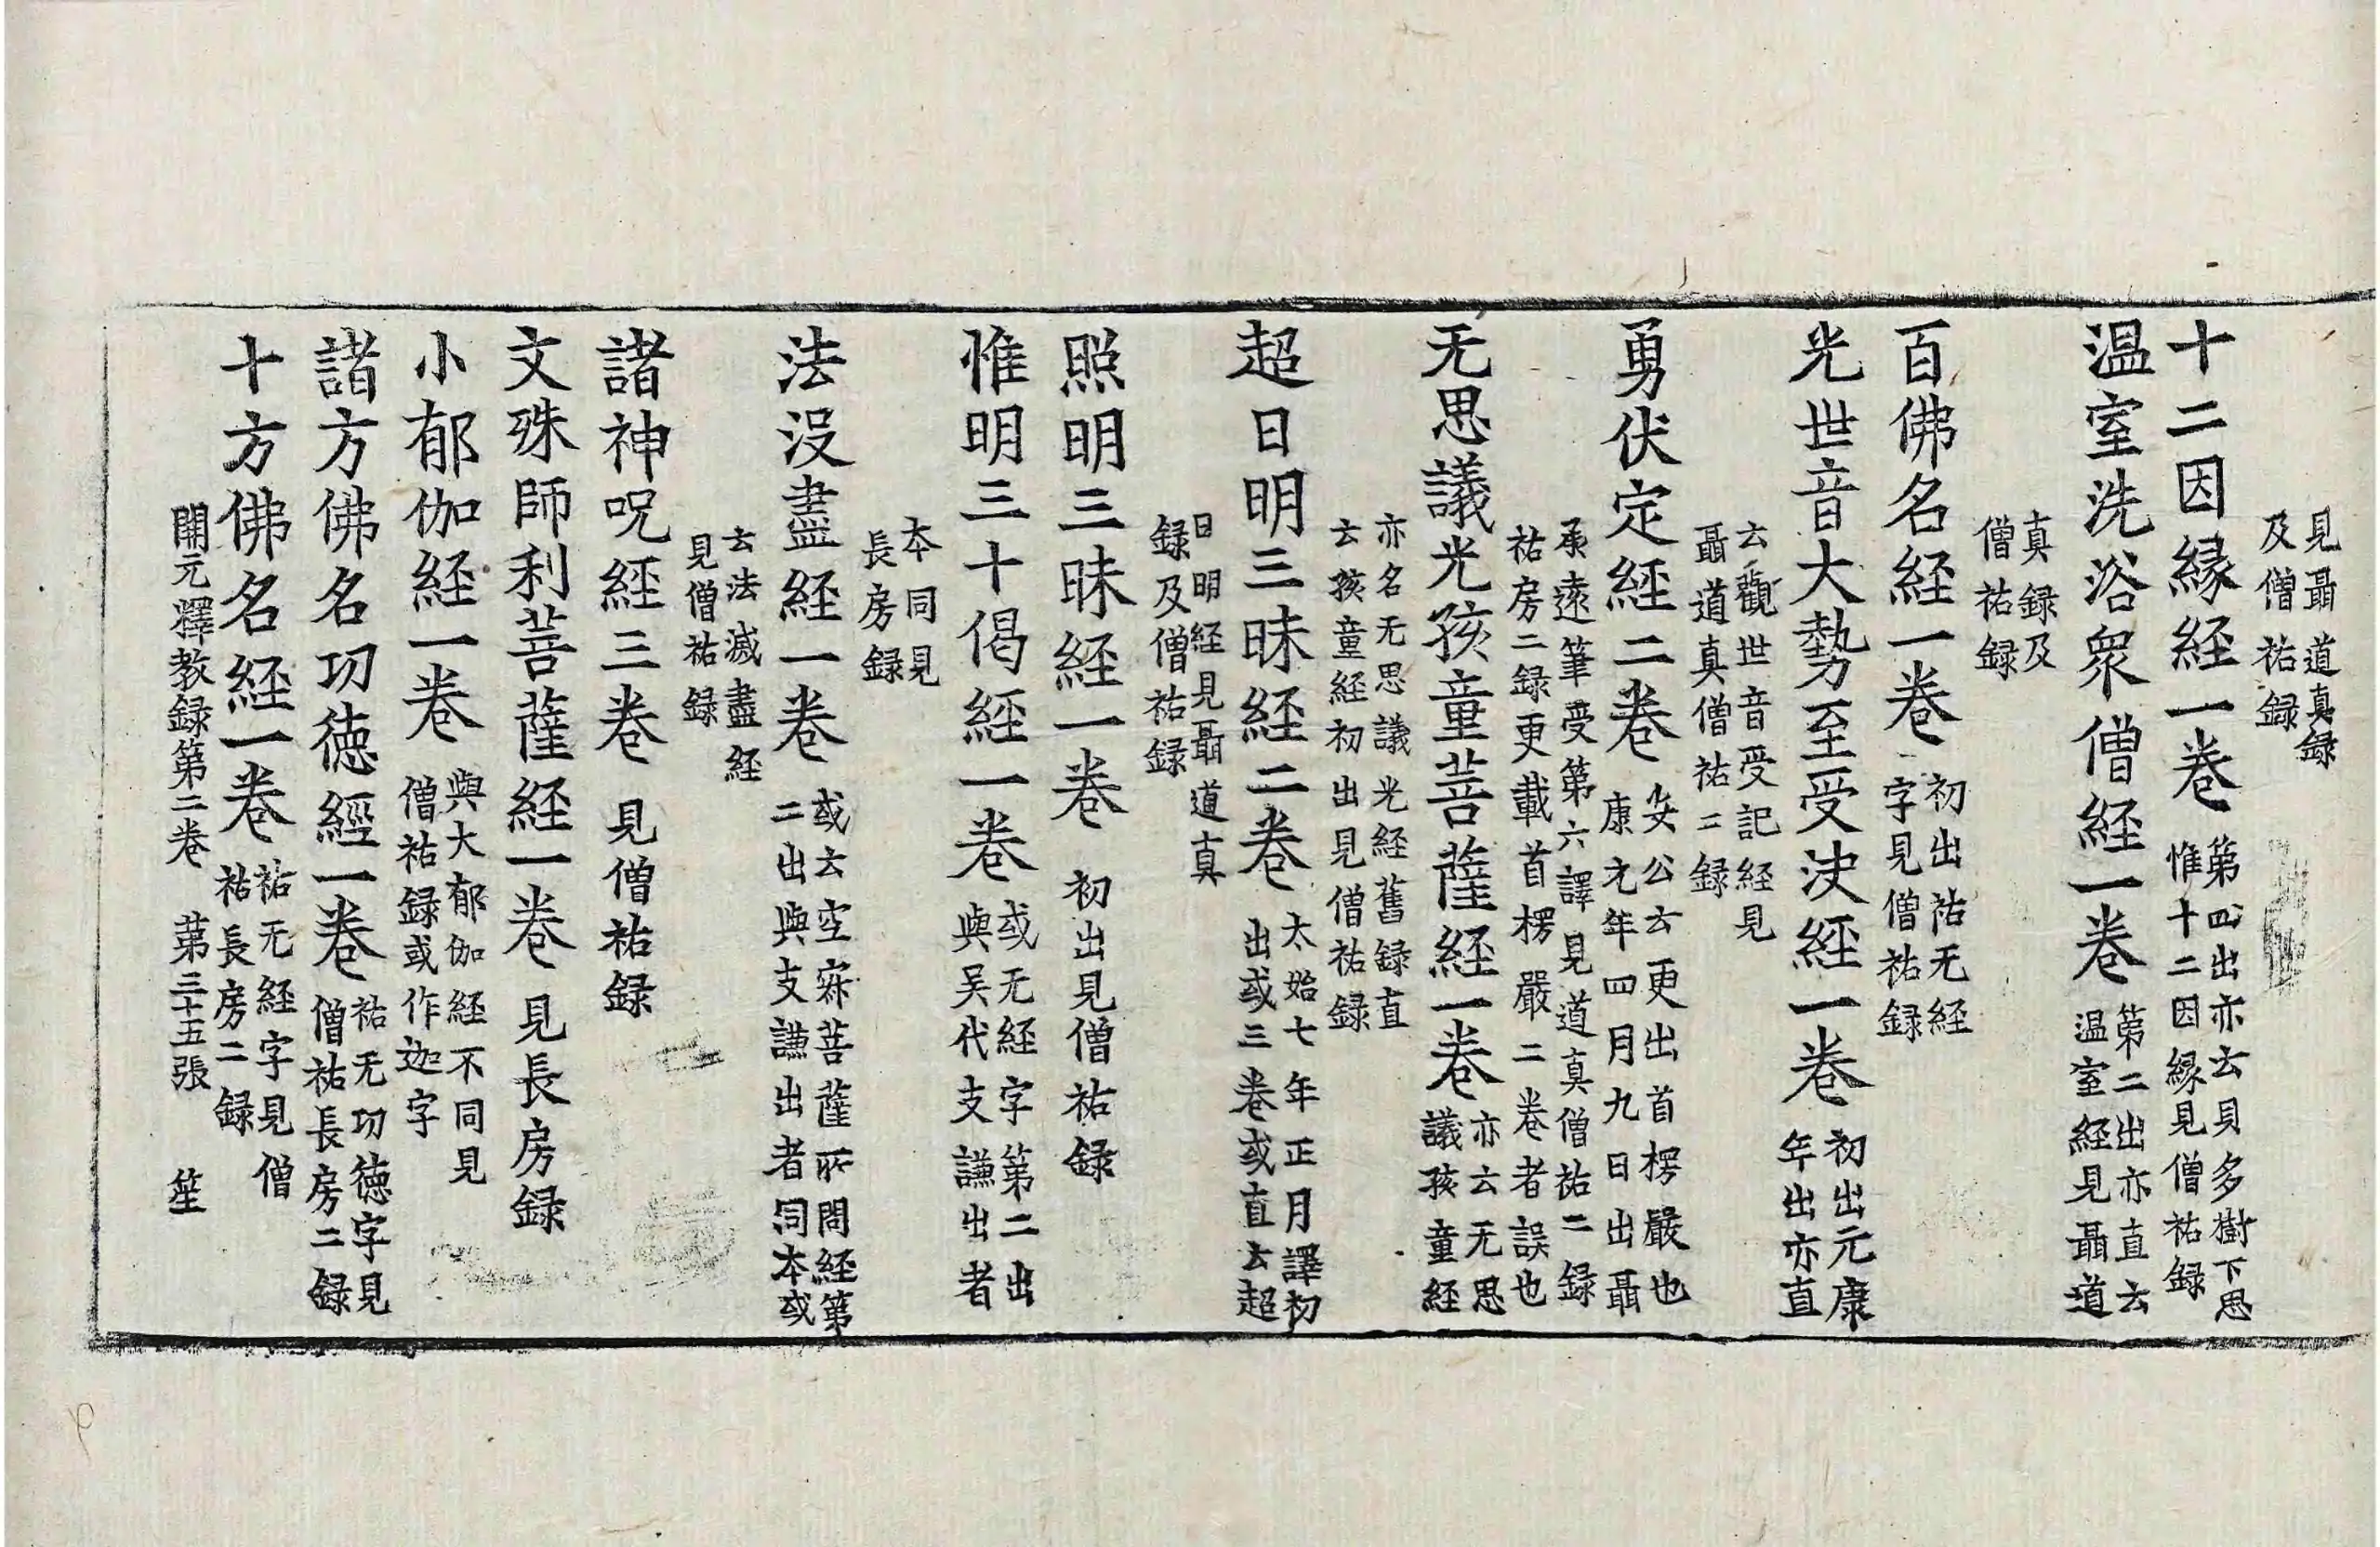 見聶道真録
及僧祐録
十二因縁経一巻
第四出亦云貝多樹下思
惟十二因縁見僧祐録
温室洗浴衆僧経一巻
第二出亦直云
温室経見聶道
真録及
僧祐録
百佛名経一巻
初出祐无経
字見僧祐録
光世音大勢至受決経一巻
初出元康
年出亦直
云觀世音受記経見
聶道真僧祐二録
勇伏定経二巻
安公云更出首楞嚴也
康元年四月九日出聶
承遠筆受第六譯見道真僧祐二録
祐房二録更載首楞嚴二巻者誤也
无思議光孩童菩薩経一巻
亦云无思
議孩童経
亦名无思議光経舊録直
云孩童経初出見僧祐録
超日明三昧経二巻
太始七年正月譯初
出或三巻或直云超
日明経見聶道真
録及僧祐録
照明三昧経一巻
初出見僧祐録
惟明三十偈経一巻
或无経字第二出
與吴代支謙出者
本同見
長房録
法没盡経一巻
或云空寂菩薩所問経第
二出與支謙出者同本或
云法滅盡経
見僧祐録
諸神呪経三巻
見僧祐録
文殊師利菩薩経一巻
見長房録
小郁伽経一巻
與大郁伽経不同見
僧祐録或作迦字
諸方佛名功徳經一巻
祐无功徳字見
僧祐長房二録
十方佛名経一巻
祐无経字見僧
祐長房二録
開元釋教録第二巻 第三十五張 笙